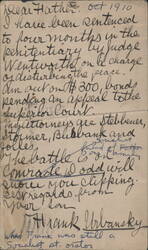 Dear Father Oct 1910
I have been sentenced
to four months in the
penitentiary by Judge
Wentworth on a charge
of disturbing the peace.
Am out on $300, bonds
pending an appeal to the
Superior Court.
My attorneys are Stebbener,
Stormer, Cubband and
The battle
Comrade Todd will
show you clipping.
Best regards from
Your son
Frank Urbansky
was still a
Socialist st orator